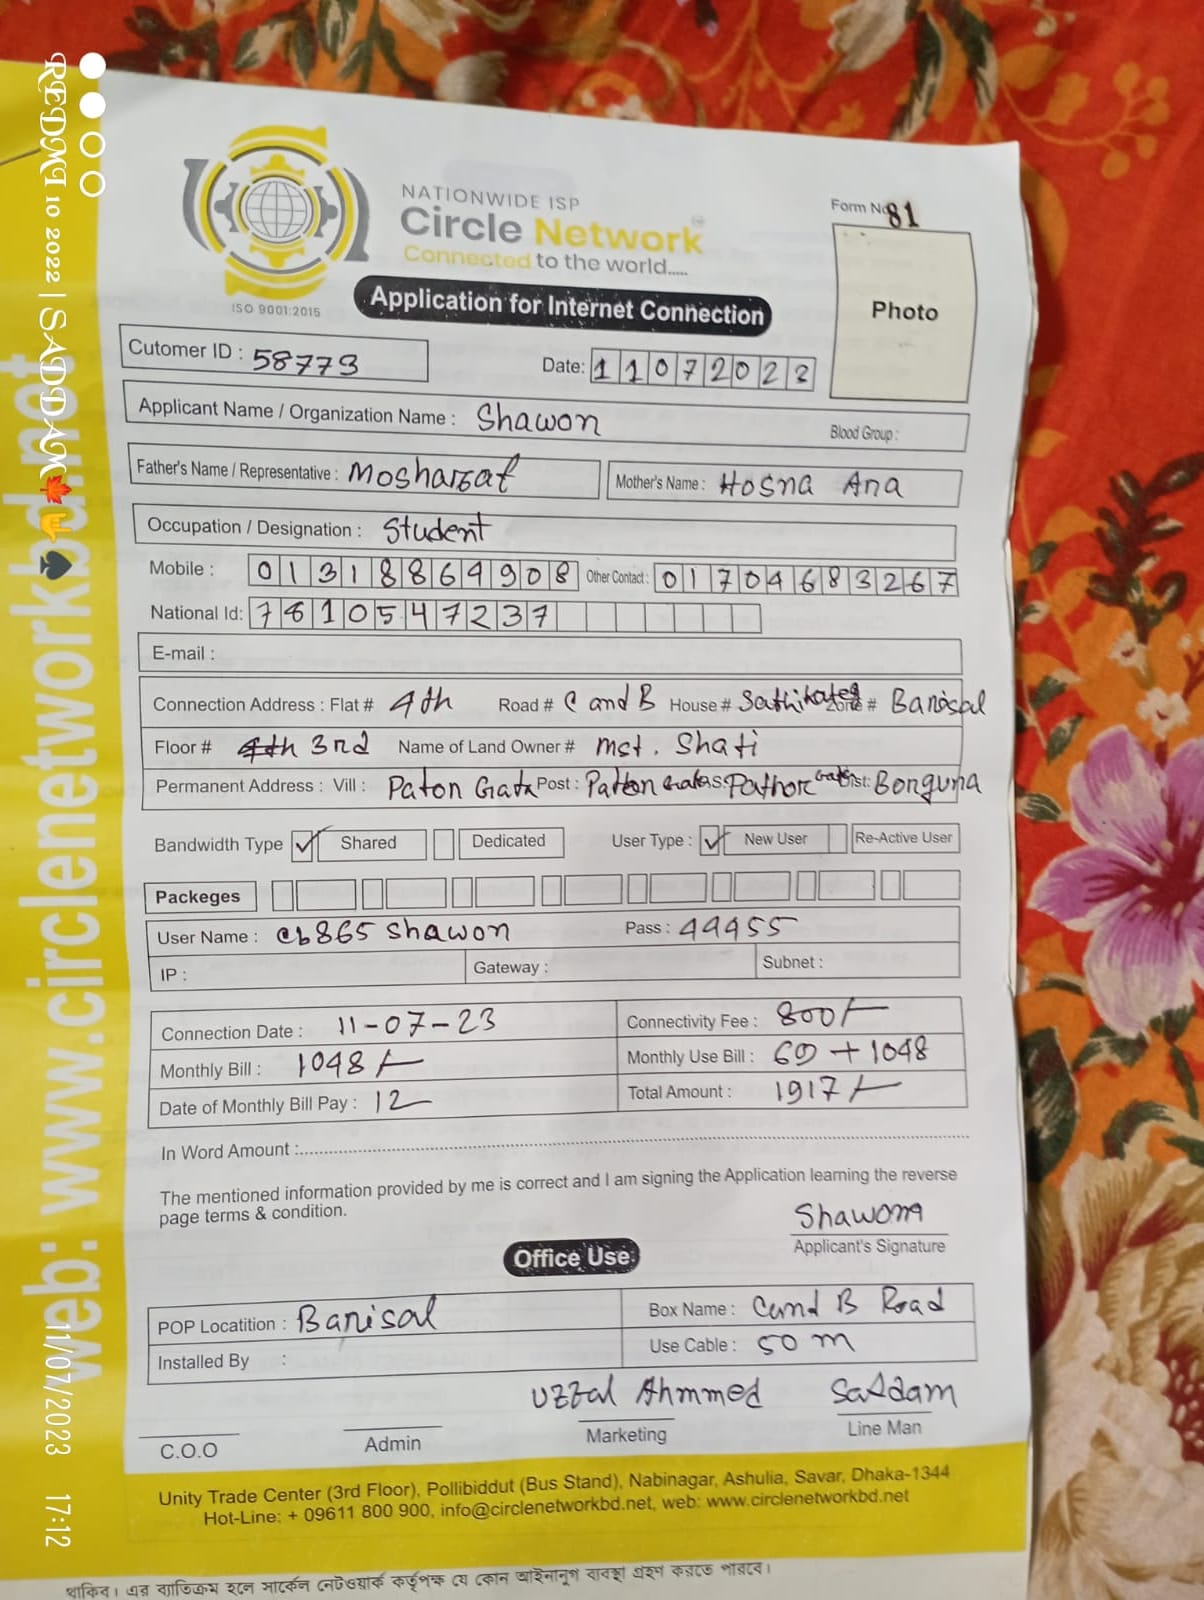 NATIONWIDE ISP
Circle Network
Connected to the world.....
ISO 9001:2015
Form No 81
Photo
Application for Internet Connection
Cutomer ID : 58773
Date: 11072023
Applicant Name / Organization Name : Shawon
Blood Group :
Father's Name / Representative : Mosharaf
Mother's Name : Hosna Ara
Occupation / Designation : Student
Mobile : 01318864908 Other Contact : 01704683267
National Id: 7810547237
E-mail :
Connection Address : Flat # 4th Road # C and B House # Zone # Barisal
Floor # 3rd Name of Land Owner # mst. Shati
Permanent Address : Vill : Paton Gata Post : Paton Dist: Borguna
Bandwidth Type Shared Dedicated User Type : New User Re-Active User
Packeges
User Name : cb865 shawon Pass : 44455
IP : Gateway : Subnet :
Connection Date : 11-07-23 Connectivity Fee : 800/-
Monthly Bill : 1048/- Monthly Use Bill : 69 + 1048
Date of Monthly Bill Pay : 12 Total Amount : 1917/-
In Word Amount :
The mentioned information provided by me is correct and I am signing the Application learning the reverse
page terms & condition.
Shawon
Applicant's Signature
Office Use:
POP Locatition : Barisal Box Name : C and B Road
Installed By : Use Cable : 50 m
Uzzal Ahmmed Saddam
C.O.O Admin Marketing Line Man
Unity Trade Center (3rd Floor), Pollibiddut (Bus Stand), Nabinagar, Ashulia, Savar, Dhaka-1344
Hot-Line: + 09611 800 900, info@circlenetworkbd.net, web: www.circlenetworkbd.net
থাকিব। এর ব্যতিক্রম হলে সার্কেল নেটওয়ার্ক কর্তৃপক্ষ যে কোন আইনানুগ ব্যবস্থা গ্রহণ করতে পারবে।
web: www.circlenetworkbd.net
REDMI 10 2022 | SADDAM
11/07/2023 17:12